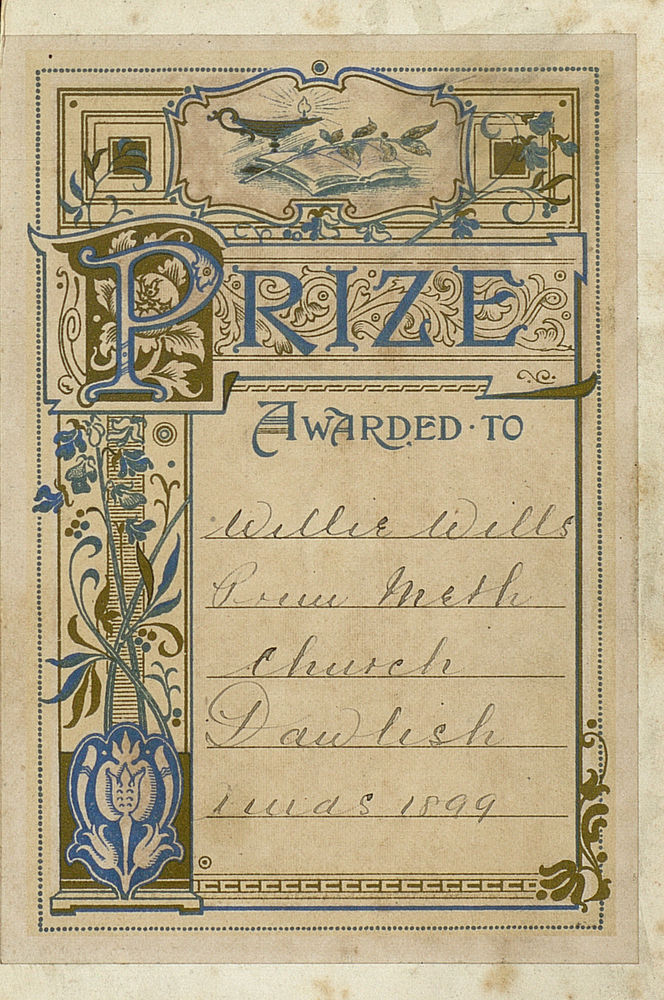 PRIZE
AWARDED · TO
Willie Wills
Prim Meth
Church
Dawlish
Xmas 1899